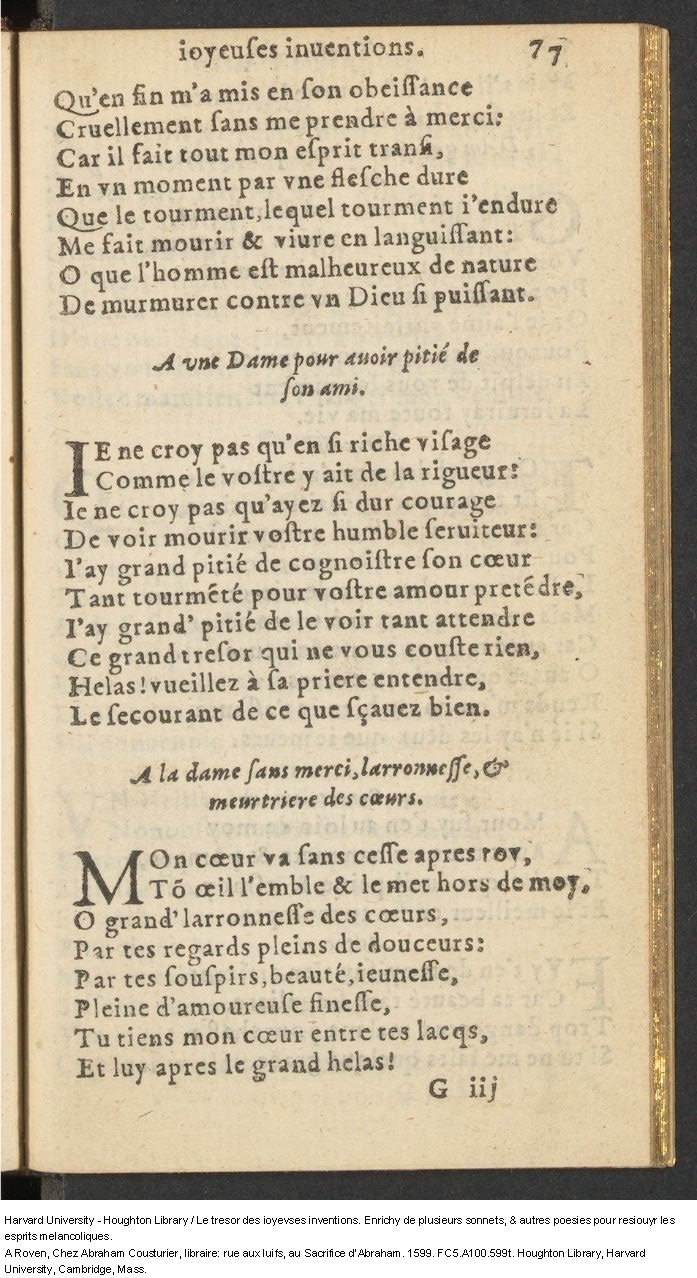 ioyeuſes inuentions. 77
Qu'en fin m'a mis en ſon obeiſſance
Cruellement ſans me prendre à merci:
Car il fait tout mon eſprit tranſi,
En vn moment par vne fleſche dure
Que le tourment, lequel tourment i'endure
Me fait mourir & viure en languiſſant:
O que l'homme eſt malheureux de nature
De murmurer contre vn Dieu ſi puiſſant.
A vne Dame pour auoir pitié de
ſon ami.
IE ne croy pas qu'en ſi riche viſage
Comme le voſtre y ait de la rigueur:
Ie ne croy pas qu'ayez ſi dur courage
De voir mourir voſtre humble ſeruiteur:
I'ay grand pitié de cognoiſtre ſon cœur
Tant tourmẽté pour voſtre amour pretẽdre,
I'ay grand' pitié de le voir tant attendre
Ce grand treſor qui ne vous couſte rien,
Helas! vueillez à ſa priere entendre,
Le ſecourant de ce que ſçauez bien.
A la dame ſans merci, larronneſſe, &
meurtriere des cœurs.
MOn cœur va ſans ceſſe apres toy,
Tõ œil l'emble & le met hors de moy,
O grand' larronneſſe des cœurs,
Par tes regards pleins de douceurs:
Par tes ſouſpirs, beauté, ieuneſſe,
Pleine d'amoureuſe fineſſe,
Tu tiens mon cœur entre tes lacqs,
Et luy apres le grand helas!
G iij
Harvard University - Houghton Library / Le tresor des ioyevses inventions. Enrichy de plusieurs sonnets, & autres poesies pour resiouyr les
esprits melancoliques.
A Roven, Chez Abraham Cousturier, libraire: rue aux Iuifs, au Sacrifice d'Abraham. 1599. FC5.A100.599t. Houghton Library, Harvard
University, Cambridge, Mass.